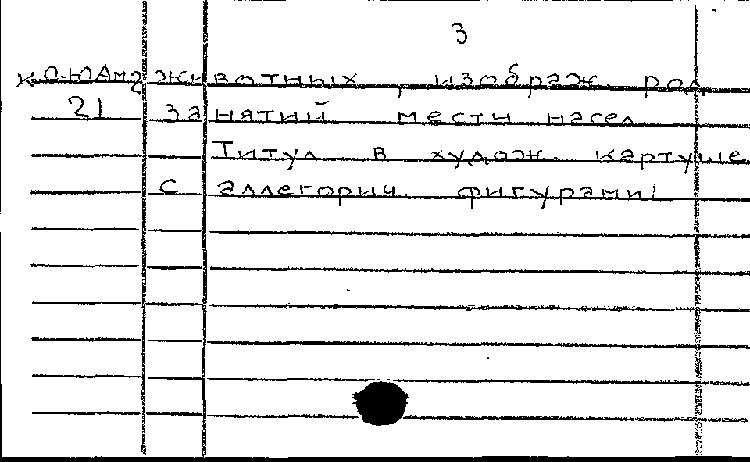 3
К.О-ЮАм2 животных, изображ. род
21 занятий местн насел
Титул в худож. картуше
с аллегорич. фигурами!